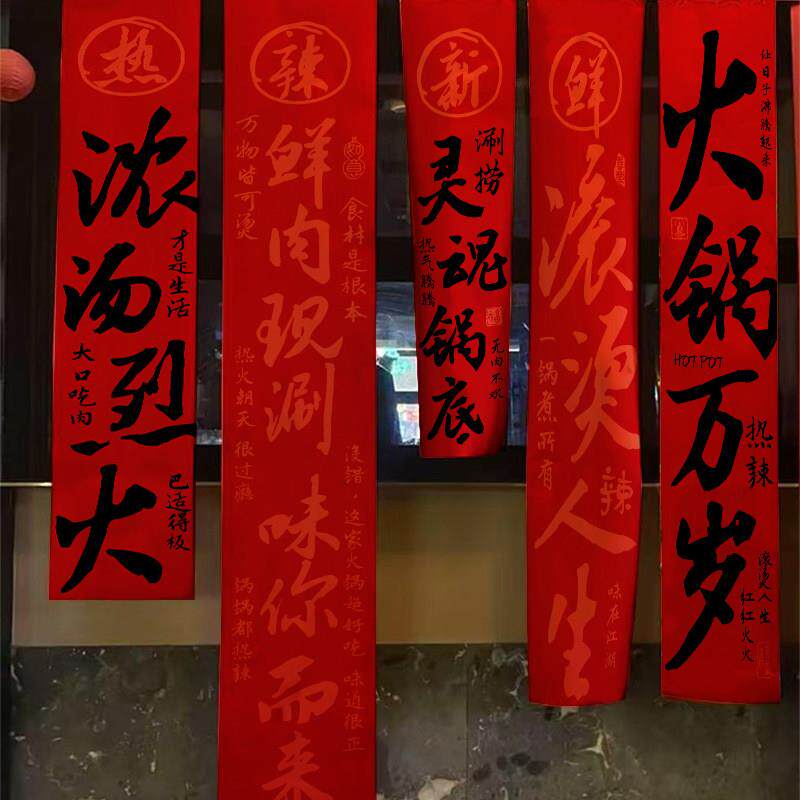 热
浓汤烈火
才是生活
大口吃肉
巴适得板
辣
鲜肉现涮
味你而来
万物皆可烫
食材是根本
热火朝天 很过瘾
没错，这家火锅超好吃 味道很正
锅锅都热辣
新
涮捞
灵魂锅底
热气腾腾
无肉不欢
鲜
滚烫人生
一锅煮所有
辣
味在江湖
让日子沸腾起来
火锅万岁
HOT POT
热辣
滚烫人生
红红火火